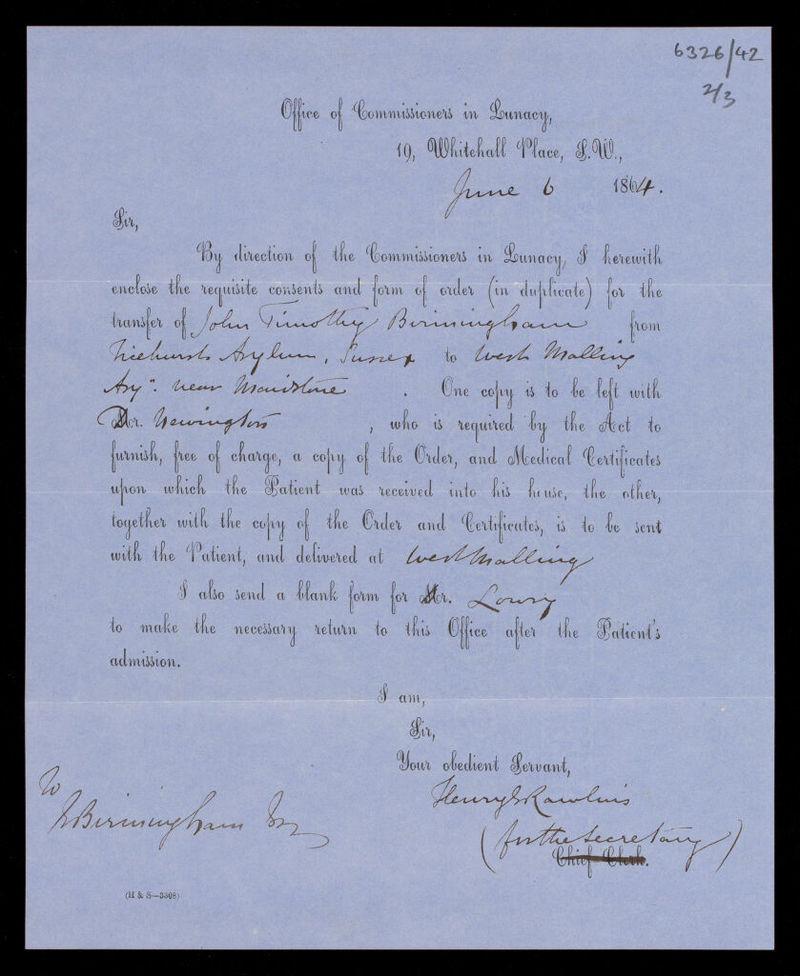 6326/42
2/3
Office of Commissioners in Lunacy,
19, Whitehall Place, S.W.,
June 6 1864.
Sir,
By direction of the Commissioners in Lunacy, I herewith
enclose the requisite consents and form of order (in duplicate) for the
transfer of John Timothy Birmingham from
Ticehurst Asylum, Sussex to West Malling
Asym. near Maidstone. One copy is to be left with
Dr. Newington, who is required by the Act to
furnish, free of charge, a copy of the Order, and Medical Certificates
upon which the Patient was received into his house, the other,
together with the copy of the Order and Certificates, is to be sent
with the Patient, and delivered at West Malling
I also send a blank form for Dr. Lowry
to make the necessary return to this Office after the Patient's
admission.
I am,
Sir,
Your obedient Servant,
Henry Rawlins
(for the Secretary)
Chief Clerk.
To
Birmingham Esq
(H & S—3308)